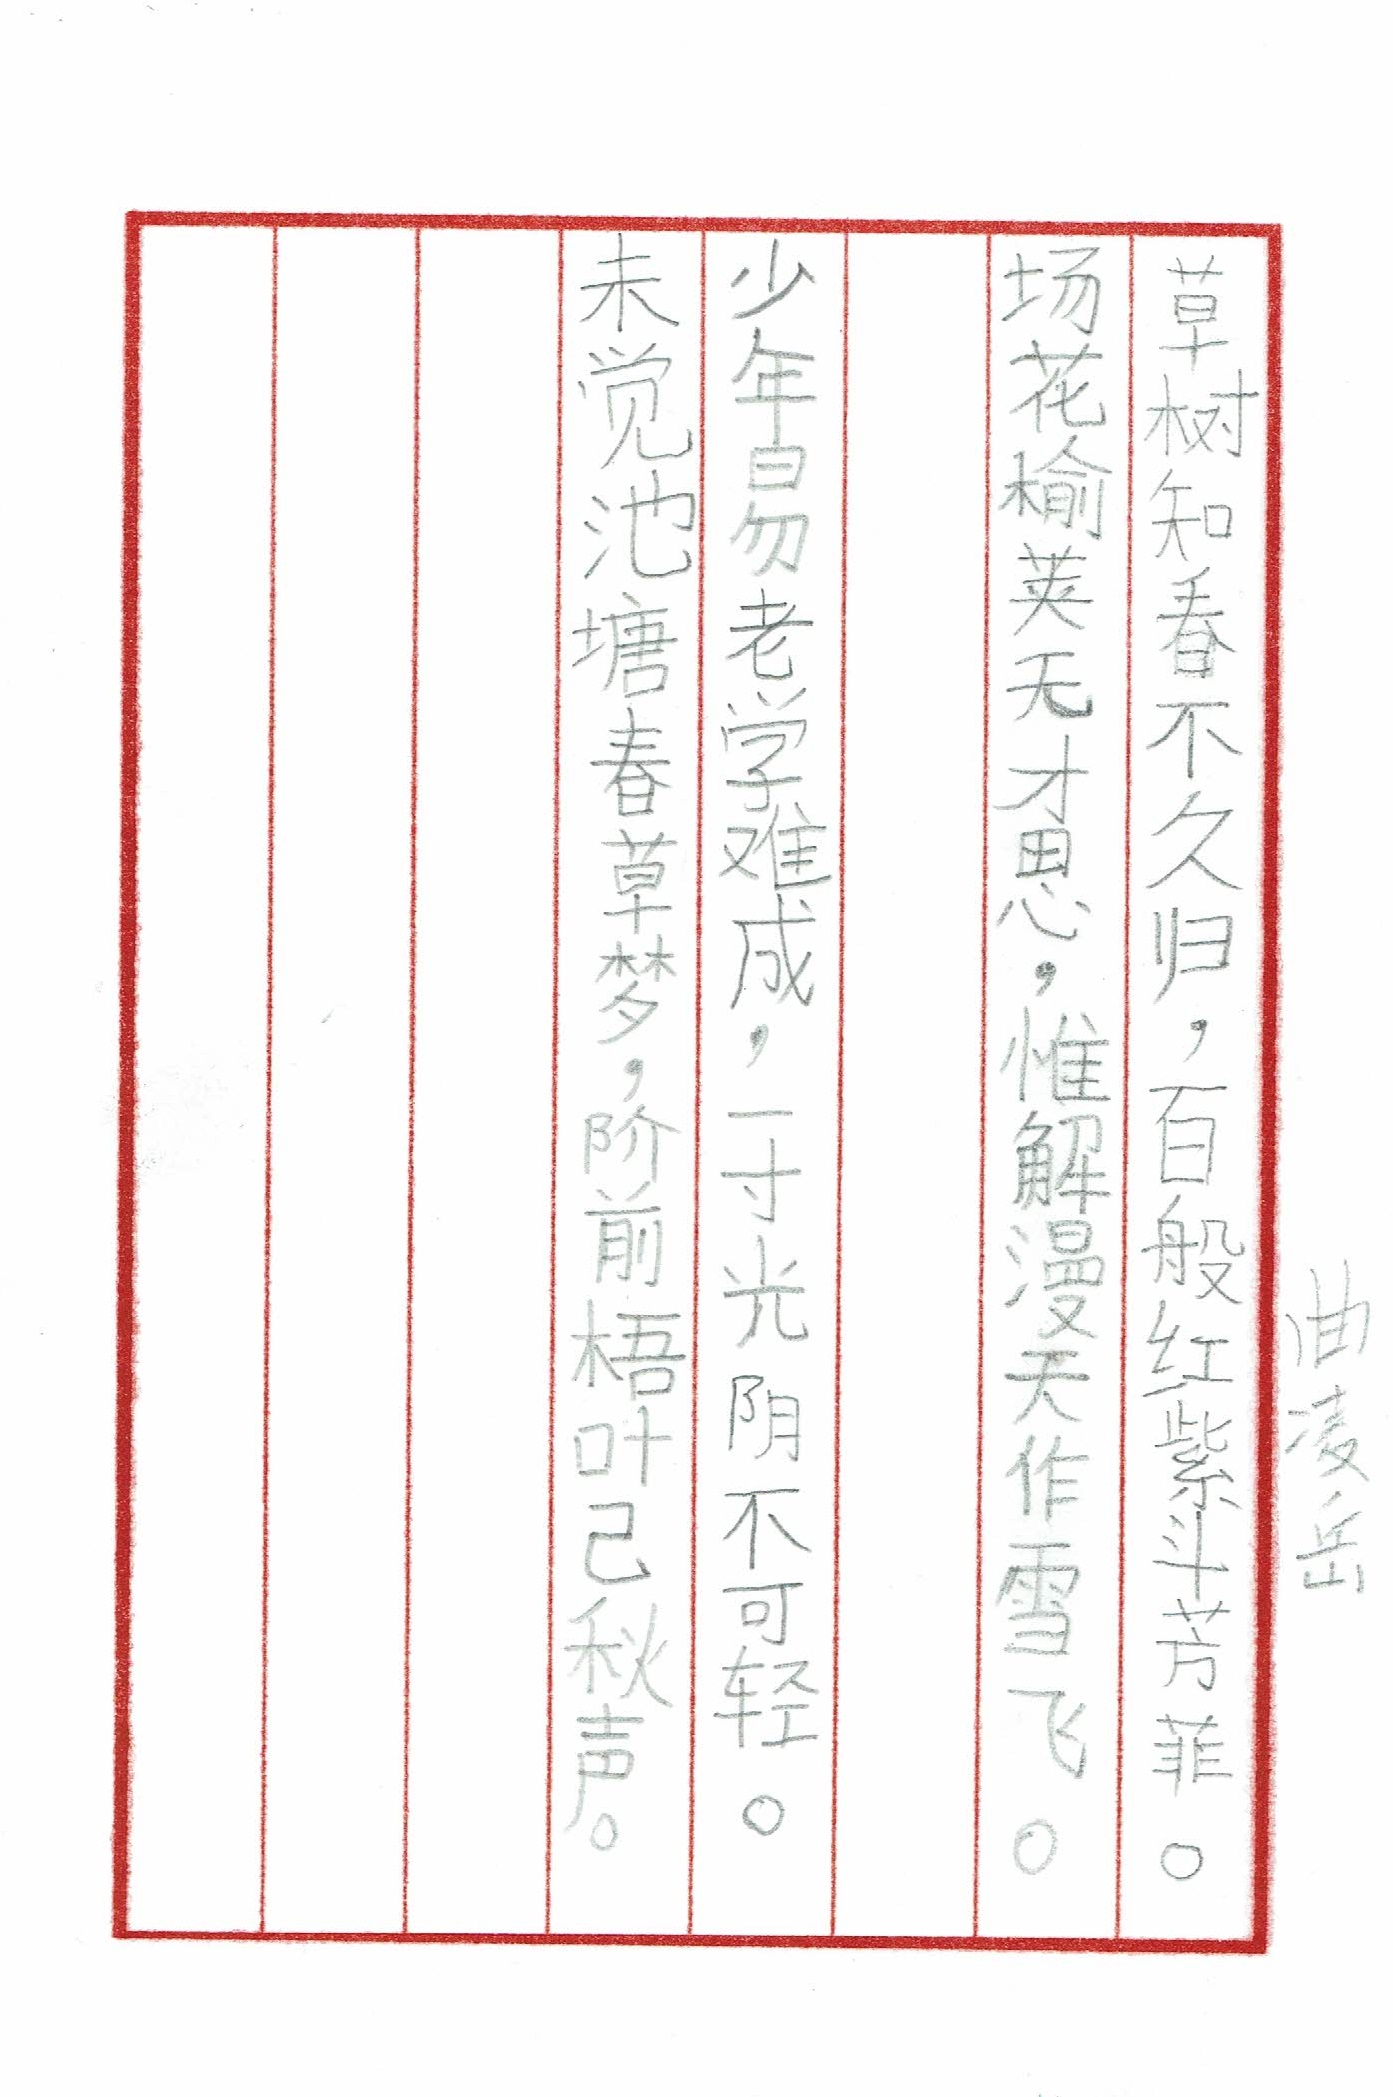 草树知春不久归，百般红紫斗芳菲。
场花榆荚无才思，惟解漫天作雪飞。
少年易老学难成，一寸光阴不可轻。
未觉池塘春草梦，阶前梧叶己秋声。
曲凌岳